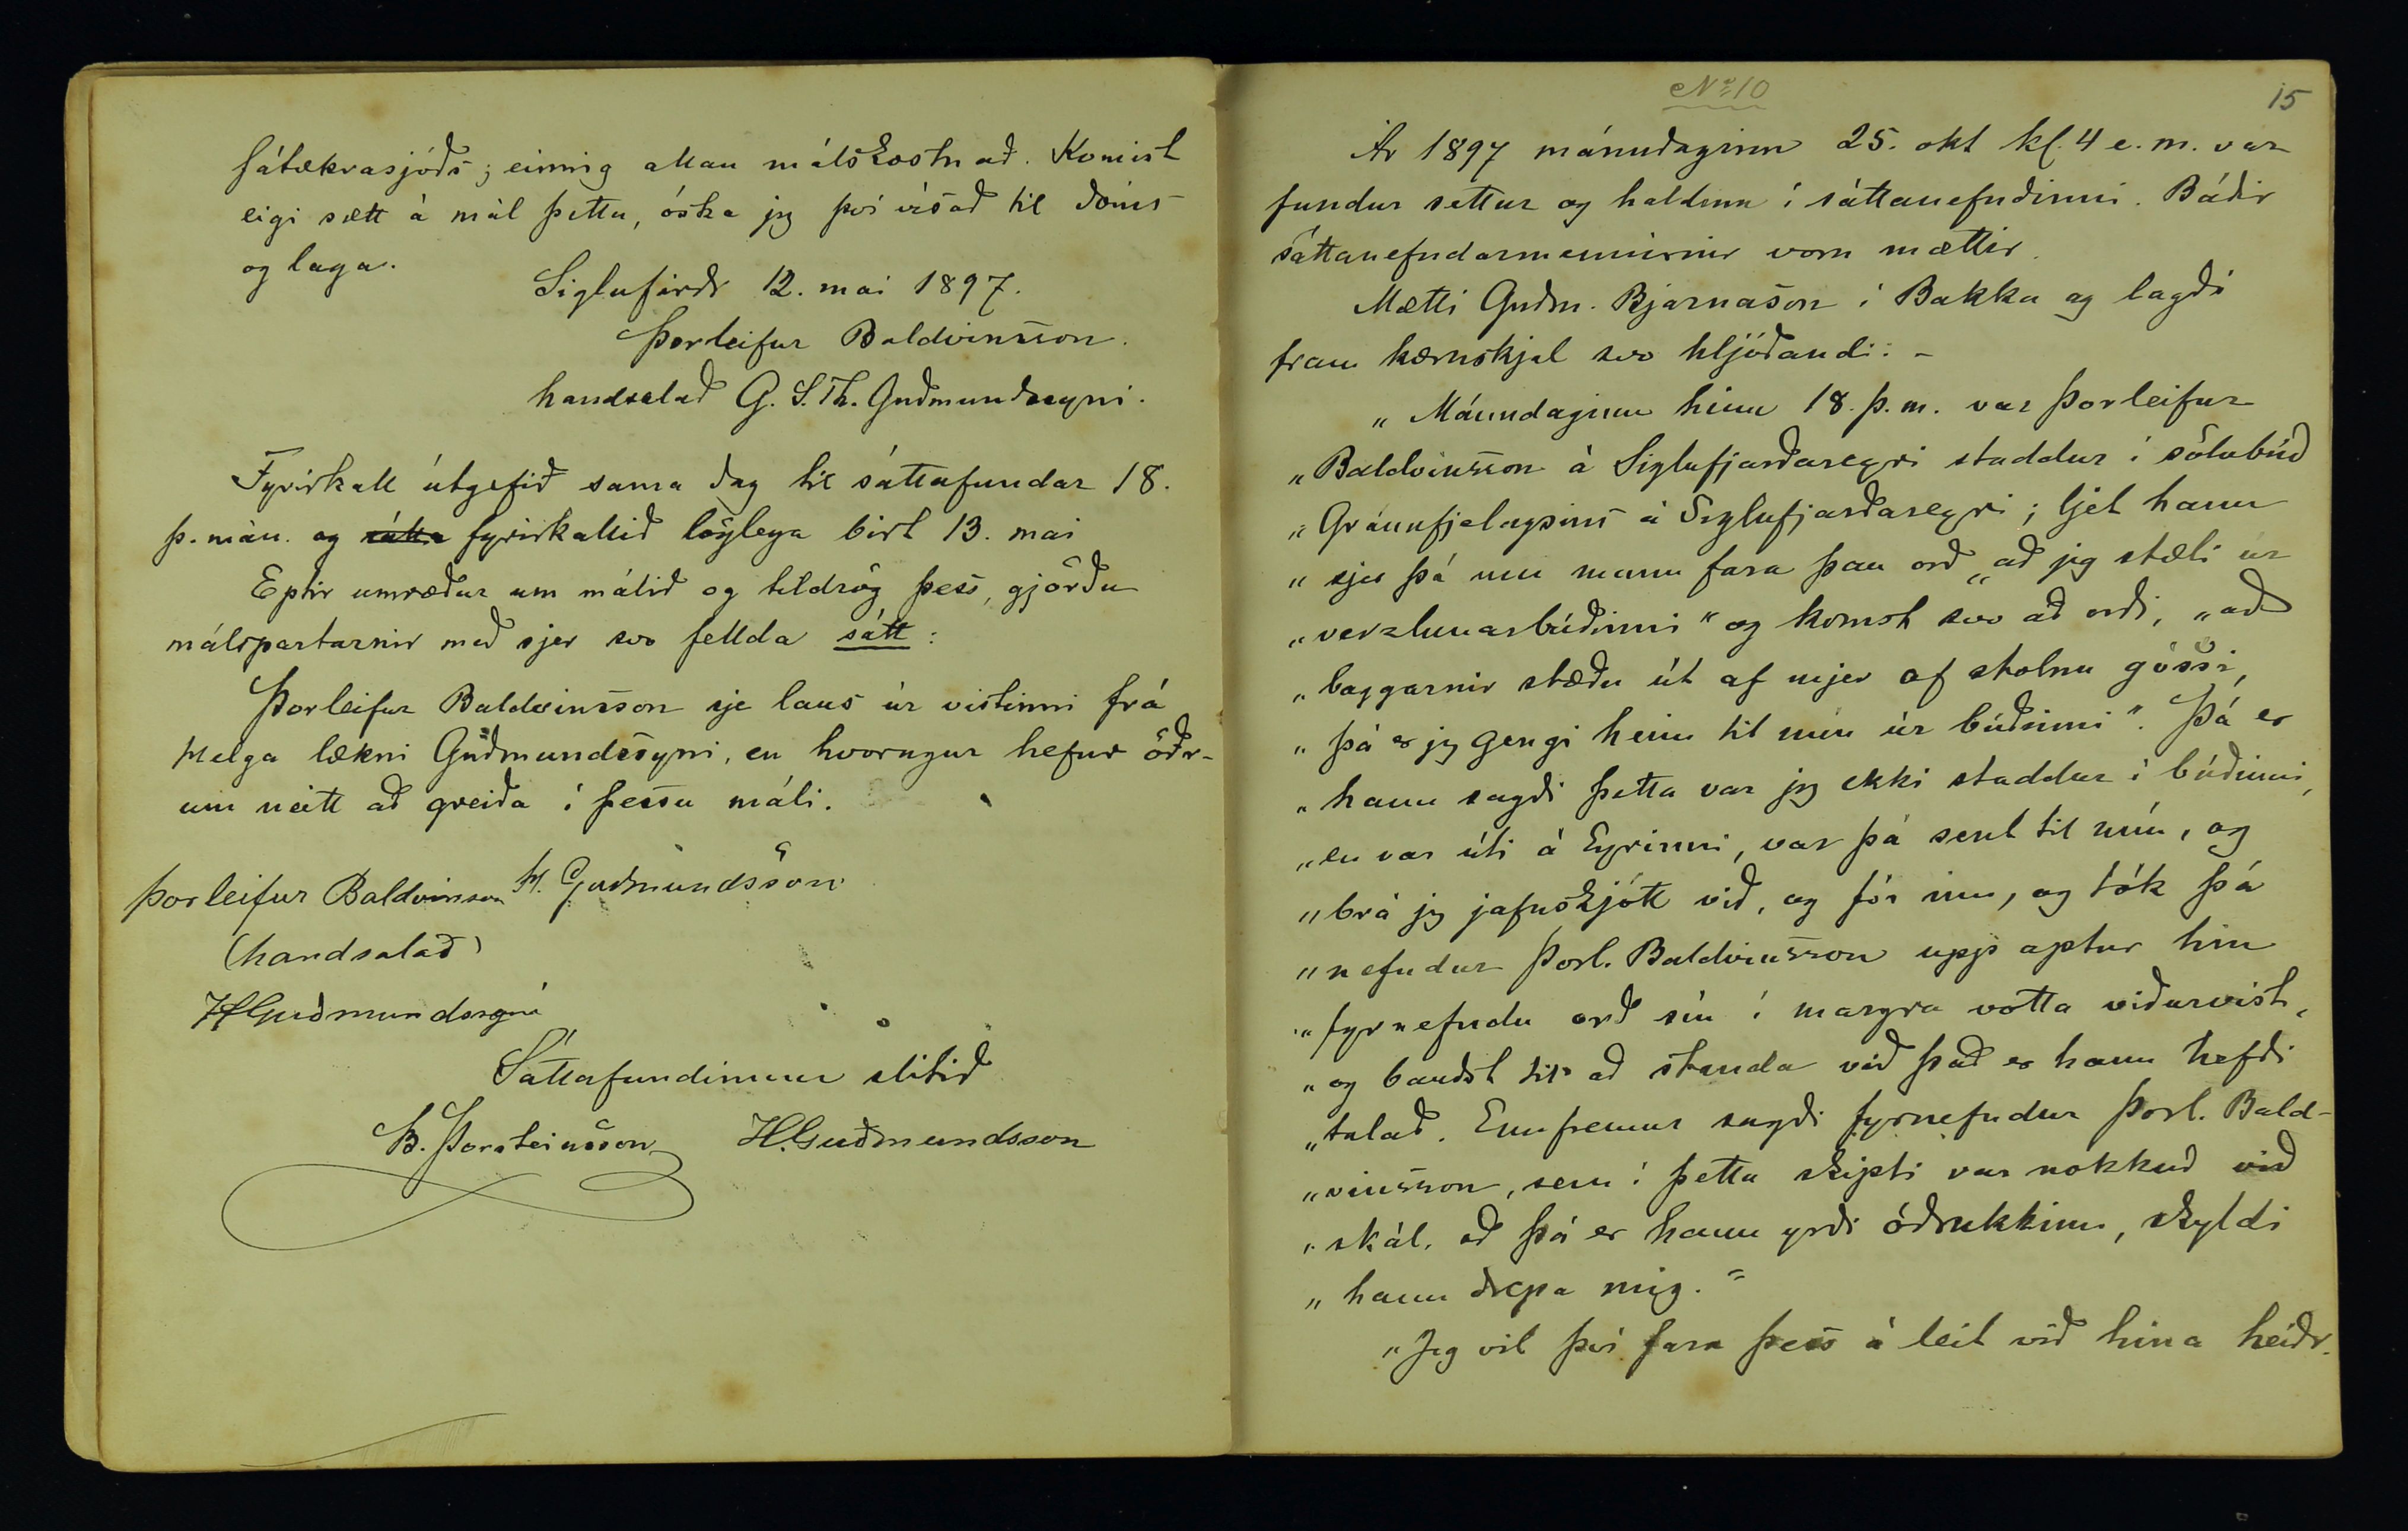 fátækrasjóðs; einnig allan málskostnað. Komist
eigi sætt á mál þetta, óska jeg því vísað til dóms
og laga.
Siglufirði 12. mai 1897.
Þorleifur Baldvinsson.
handsalað G. S. Th. Guðmundssyni.
Fyrirkall útgefið sama dag til sáttafundar 18.
þ. mán. og sátta fyrirkallið löglega birt 13. mai
Eptir umræður um málið og tildrög þess, gjörðu
málspartarnir með sjer svo fellda sátt:
Þorleifur Baldvinsson sje laus úr vistinni frá
Helga lækni Guðmundssyni, en hvorugur hefur öðr-
um neitt að greiða í þessu máli.
Þorleifur Baldvinsson H. Guðmundsson
(handsalað)
HGuðmundssyni
Sáttafundinum slitið
B. Þorsteinsson HGuðmundsson
No 10
15
Ár 1897 mánudaginn 25. okt kl. 4 e. m. var
fundur settur og haldinn í sáttanefndinni. Báðir
sáttanefndarmennirnir voru mættir.
Mætti Guðm. Bjarnason í Bakka og lagði
fram kæruskjal svo hljóðandi: -
„Mánudaginn hinn 18. þ. m. var Þorleifur
„Baldvinsson á Siglufjarðareyri staddur í sölubúð
„Gránufjelagsins á Siglufjarðareyri; ljet hann
„sjer þá um munn fara þau orð „að jeg stæli úr
„verzlunarbúðinni" og komst svo að orði, „að
„baggarnir stæðu út af mjer af stolnu góssi,
„þá er jeg gengi heim til mín úr búðinni". Þá er
„hann sagði þetta var jeg ekki staddur í búðinni,
„en var úti á Eyrinni, var þá sent til mín, og
„brá jeg jafnskjótt við, og fór inn, og tók þá
„nefndur Þorl. Baldvinsson upp aptur hin
„fyrnefndu orð sín í margra votta viðurvist,
„og bauðst til að standa við það er hann hefði
„talað. Ennfremur sagði fyrnefndur Þorl. Bald-
„vinsson, sem í þetta skipti var nokkuð við
„skál, að þá er hann yrði ódrukkinn, skyldi
„hann drepa mig."
„Jeg vil því fara þess á leit við hina heiðr.